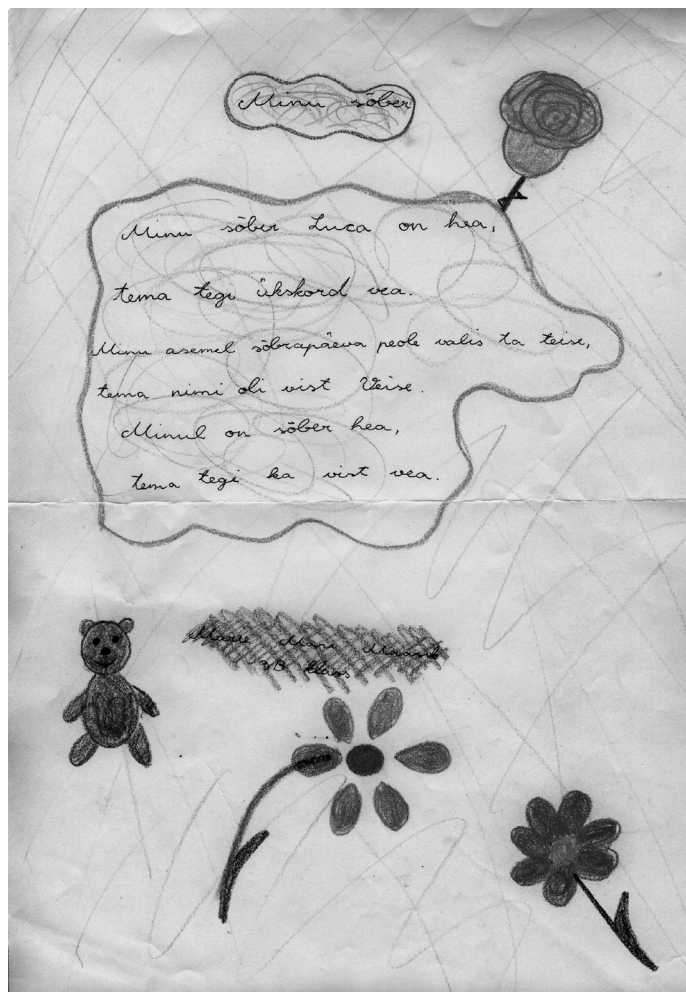 Minu sõber
Minu sõber Luca on hea,
tema tegi ükskord vea.
Minu asemel sõbrapäeva peole valis ta teise,
tema nimi oli vist Veise.
Minul on sõber hea,
tema tegi ka vist vea.
Mari
3B klass